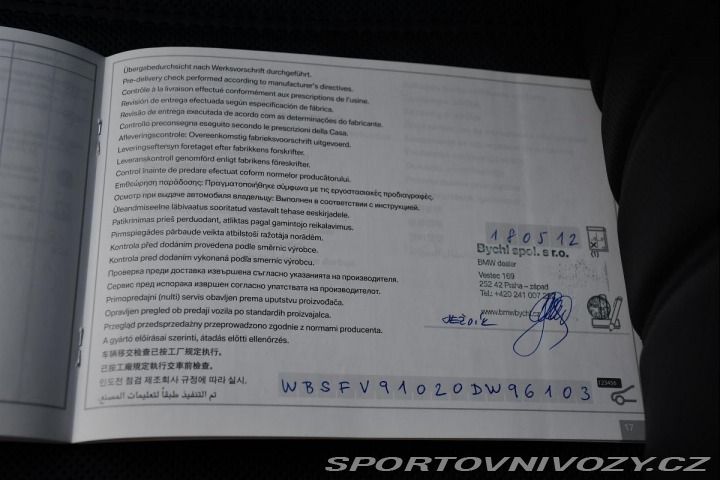 Übergabedurchsicht nach Werksvorschrift durchgeführt.
Pre-delivery check performed according to manufacturer's directives.
Contrôle à la livraison effectué conformément aux prescriptions de l'usine.
Revisión de entrega efectuada según especificación de fábrica.
Revisão de entrega executada de acordo com as determinações do fabricante.
Controllo preconsegna eseguito secondo le prescrizioni della Casa.
Afleveringscontrole: Overeenkomstig fabrieksvoorschrift uitgevoerd.
Leveringseftersyn foretaget efter fabrikkens forskrifter.
Leveranskontroll genomförd enligt fabrikens föreskrifter.
Control înainte de predare efectuat coform normelor producătorului.
Επιθεώρηση παράδοσης: Πραγματοποιήθηκε σύμφωνα με τις εργοστασιακές προδιαγραφές.
Осмотр при выдаче автомобиля владельцу: Выполнен в соответствии с инструкцией.
Üleandmiseelne läbivaatus sooritatud vastavalt tehase eeskirjadele.
Patikrinimas prieš perduodant, atliktas pagal gamintojo reikalavimus.
Pirmspiegādes pārbaude veikta atbilstoši ražotāja norādēm.
Kontrola před dodáním provedena podle směrnic výrobce.
Kontrola pred dodaním vykonaná podľa smerníc výrobcu.
Проверка преди доставка извършена съгласно указанията на производителя.
Сервис пред испорака извршен согласно упатствата на производителот.
Primopredajni (nulti) servis obavljen prema uputstvu proizvođača.
Opravljen pregled ob predaji vozila po standardih proizvajalca.
Przegląd przedsprzedażny przeprowadzono zgodnie z normami producenta.
A gyártó előírásai szerinti, átadás előtti ellenőrzés.
车辆移交检查已按工厂规定执行。
已按工廠規定執行交車前檢查。
인도전 점검 제조회사 규정에 따라 실시.
تم التنفيذ طبقاً لتعليمات المصنع
180512
Bychl spol. s r.o.
BMW dealer
Vestec 169
252 42 Praha – západ
Tel.: +420 241 007
www.bmwbychl.cz
WBSFV91020DW96103
123456
17
SPORTOVNIVOZY.CZ